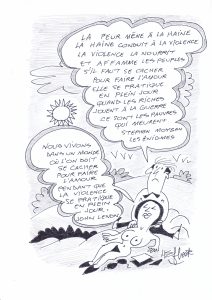 LA PEUR MÈNE À LA HAINE
LA HAINE CONDUIT À LA VIOLENCE
LA VIOLENCE LA NOURRIT
ET AFFAME LES PEUPLES
S'IL FAUT SE CACHER
POUR FAIRE L'AMOUR
ELLE SE PRATIQUE
EN PLEIN JOUR
QUAND LES RICHES
JOUENT À LA GUERRE
CE SONT LES PAUVRES
QUI MEURENT
STEPHEN MORGAN
LES ÉNIGMES
NOUS VIVONS
DANS UN MONDE
OÙ L'ON DOIT
SE CACHER
POUR FAIRE
L'AMOUR
PENDANT QUE
LA VIOLENCE
SE PRATIQUE
EN PLEIN
JOUR.
JOHN LENON